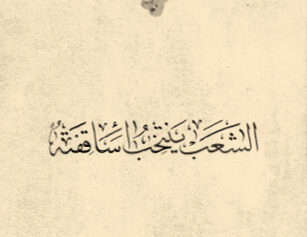 الشعَبَ يَنتخبُ أسَاقفتهُ